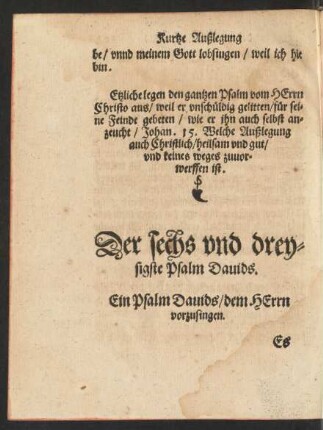 Kurtze Außlegung
be/ vnnd meinem Gott lobsingen / weil ich hie
bin.
Etzliche legen den gantzen Psalm vom HErrn
Christo aus/ weil er vnschüldig gelitten/für sei-
ne Feinde gebeten / wie er jhn auch selbst an-
zeucht / Johan. 15. Welche Außlegung
auch Christlich/heilsam vnd gut/
vnd keines weges zuuor-
werffen ist.
Der sechs vnd drey-
sigste Psalm Dauids.
Ein Psalm Dauids/dem HErrn
vorzusingen.
Es